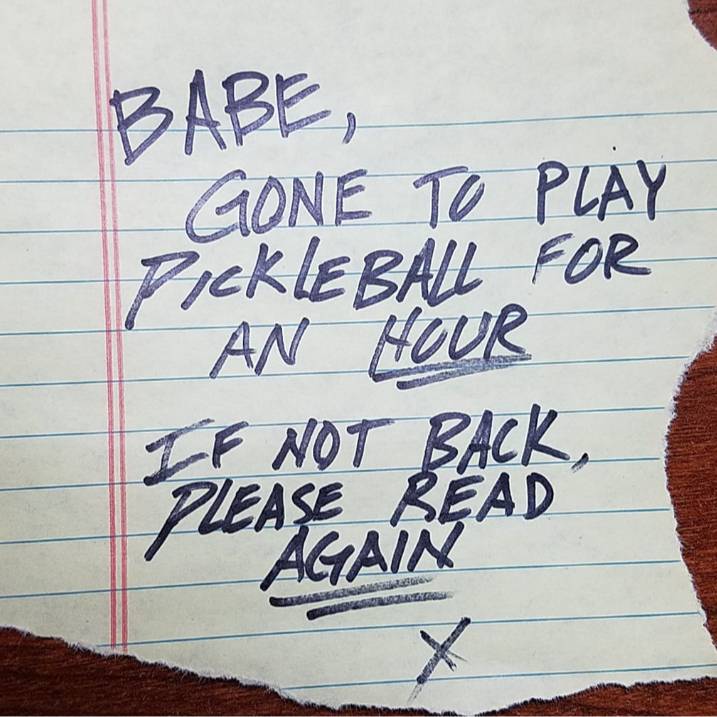 BABE,
GONE TO PLAY
PICKLEBALL FOR
AN HOUR
IF NOT BACK,
PLEASE READ
AGAIN
X